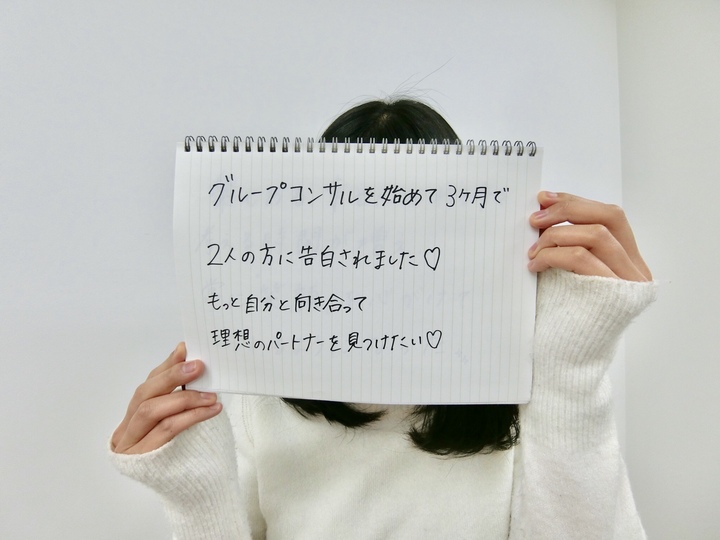 グループコンサルを始めて3ヶ月で
2人の方に告白されました♡
もっと自分と向き合って
理想のパートナーを見つけたい♡